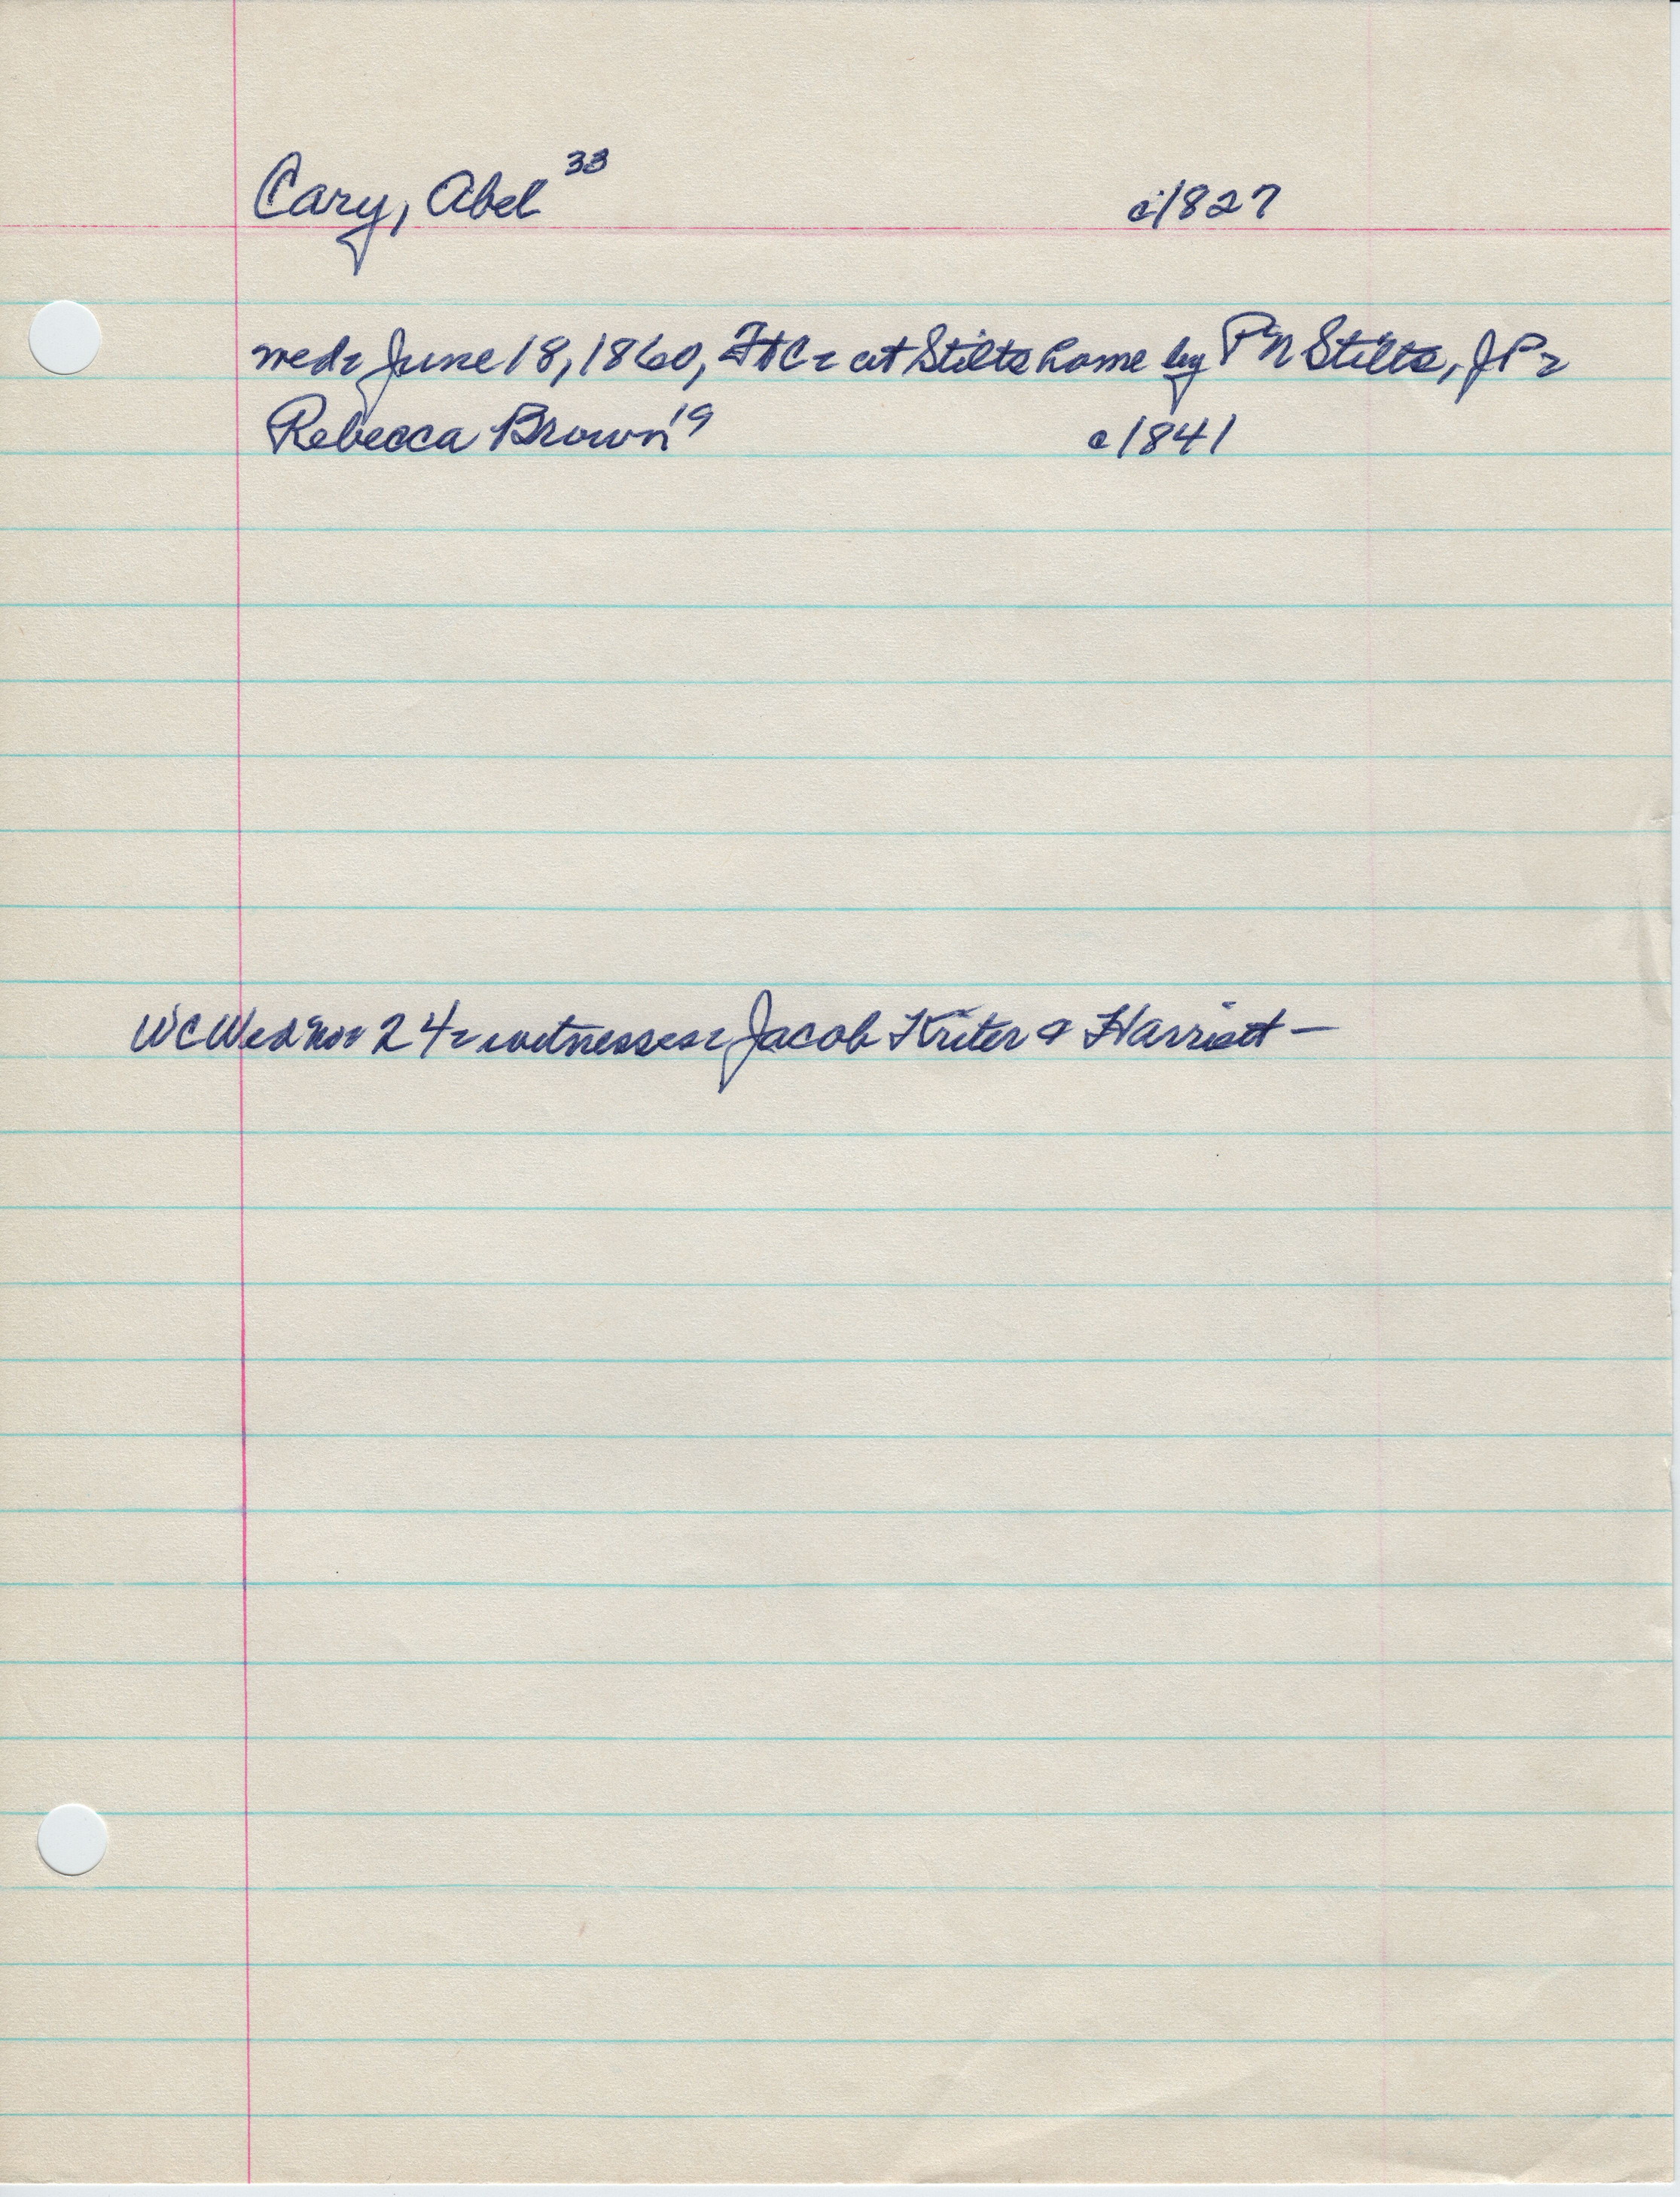 Cary, Abel 33 c1827
wed: June 18, 1860, FtC: at Stilts home by P N Stilts, JP:
Rebecca Brown 19 c1841
WCWed no. 24: witnesses: Jacob Kriter & Harriett —